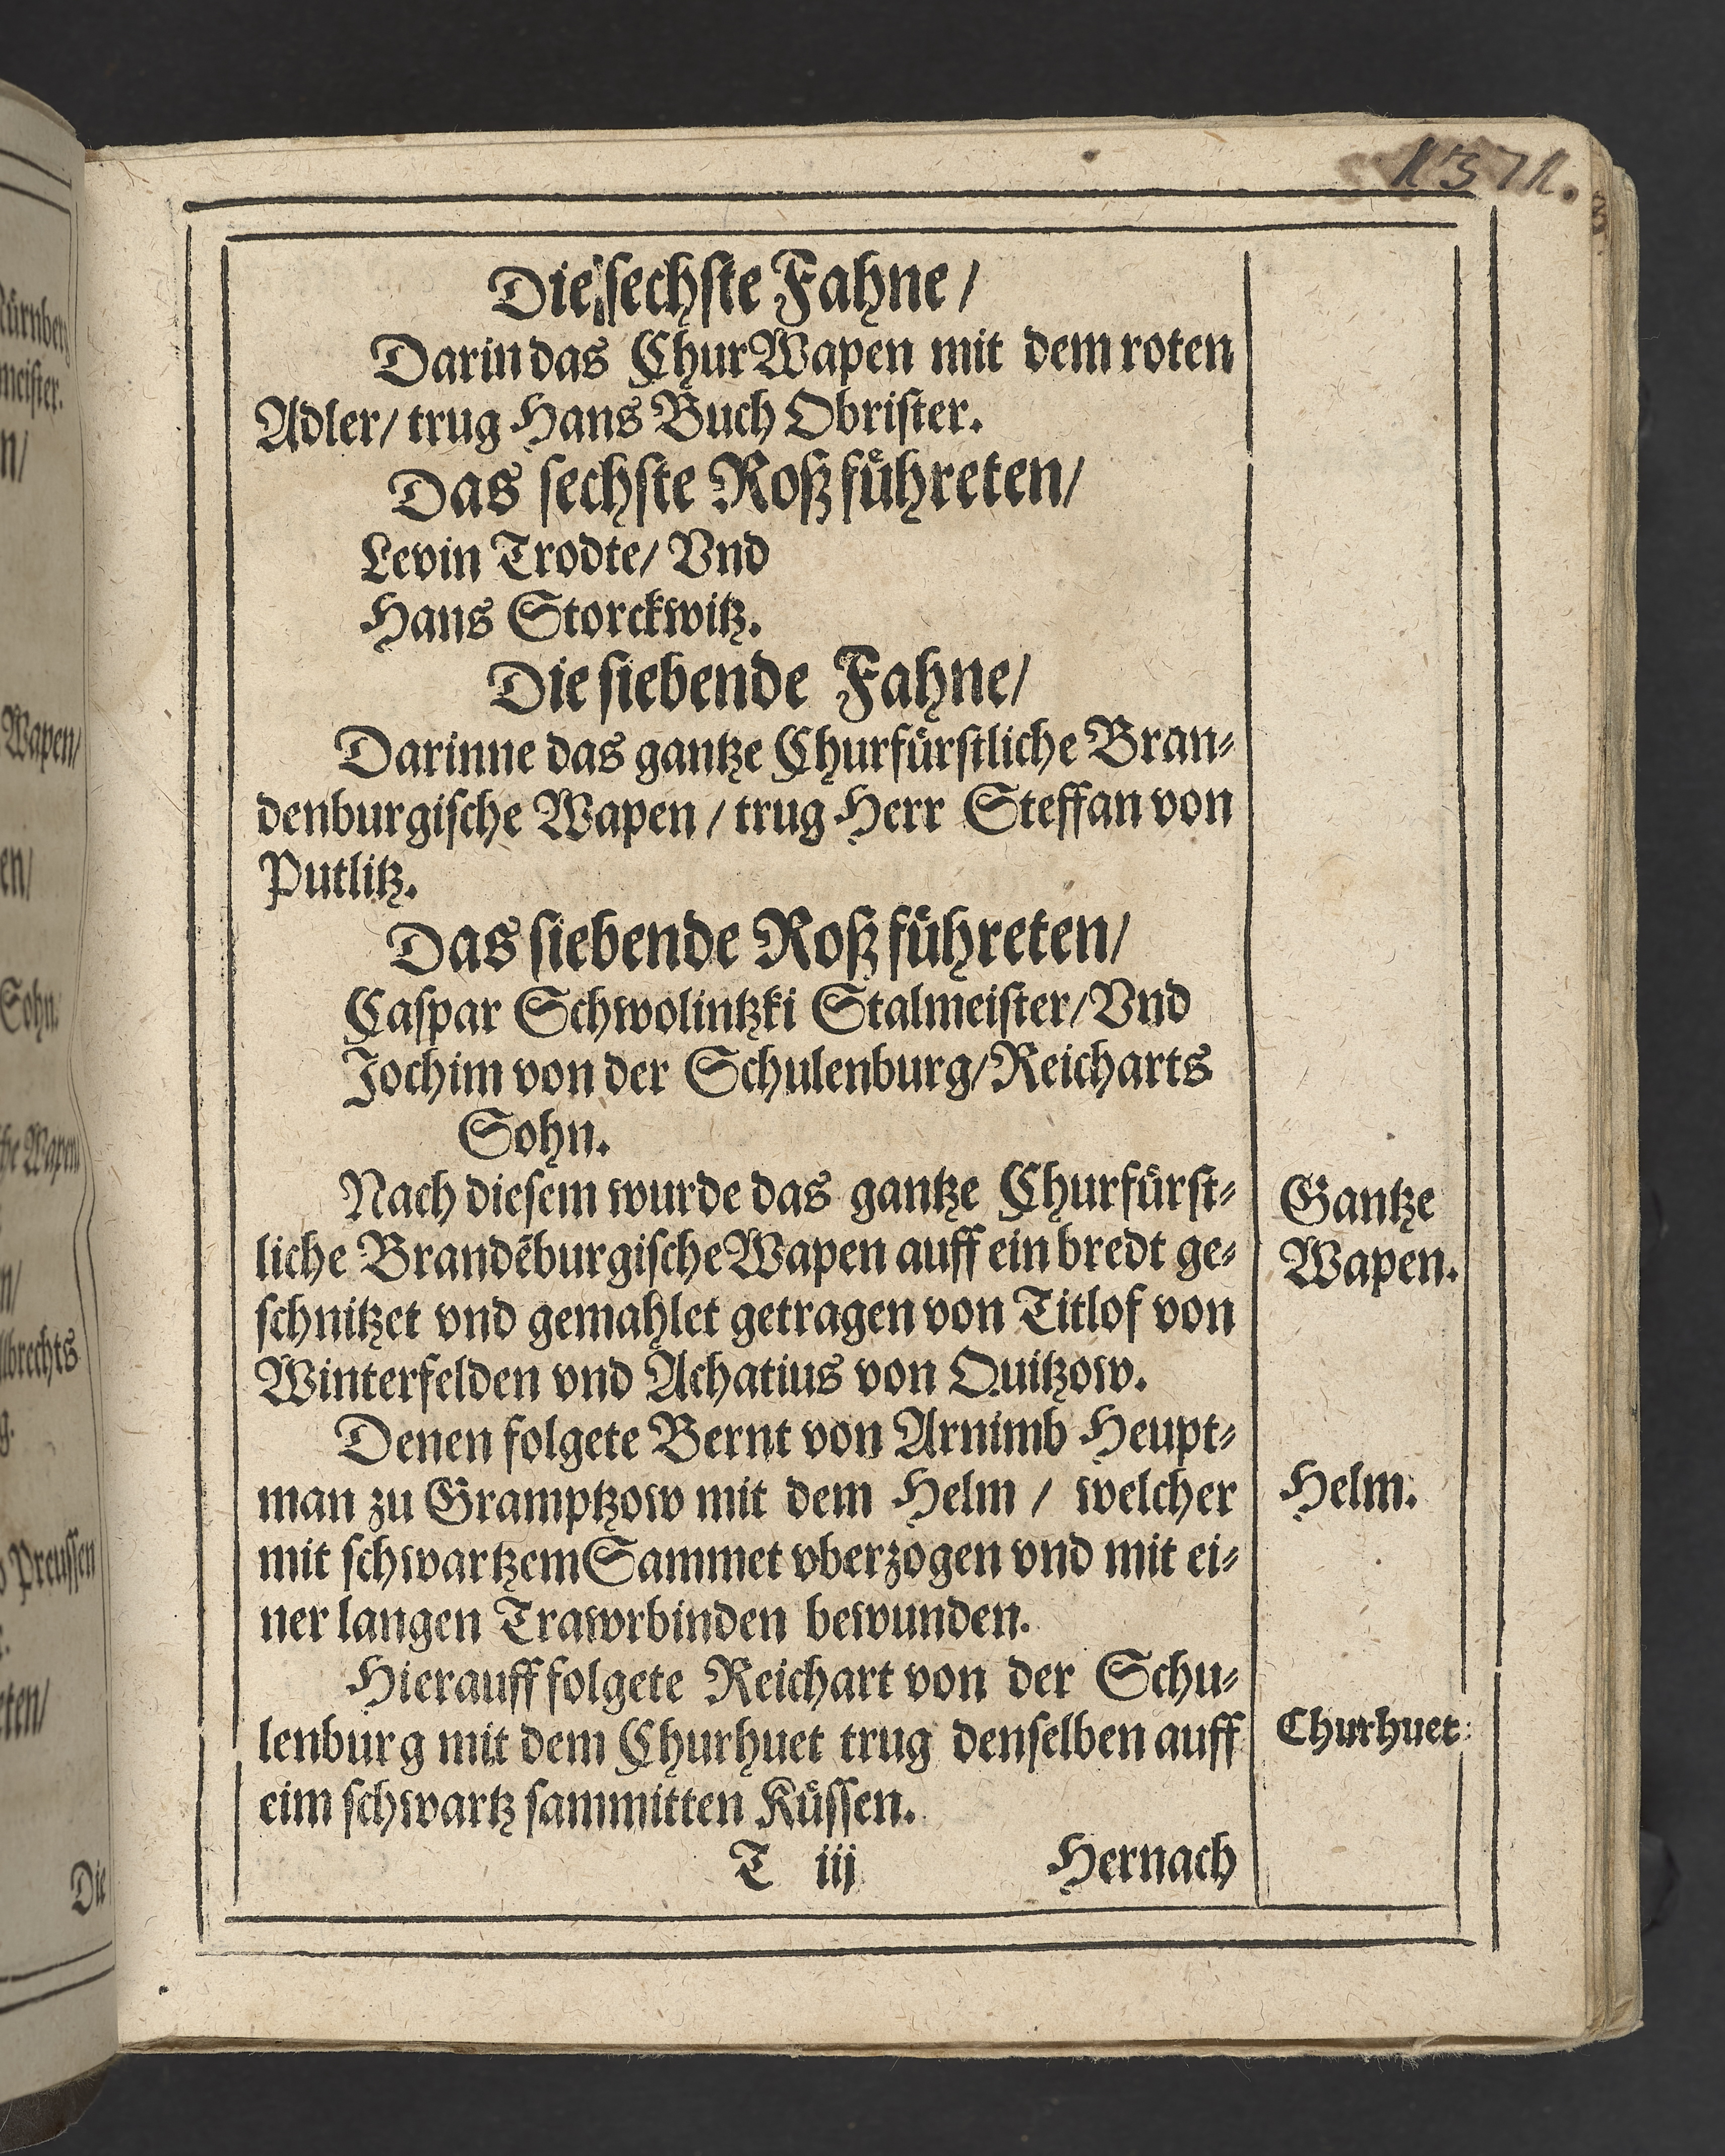 1371.
Die sechste Fahne /
Darin das ChurWapen mit dem roten
Adler / trug Hans Buch Obrister.
Das sechste Roß fuͤhreten /
Levin Trodte / Vnd
Hans Storckwitz.
Die siebende Fahne /
Darinne das gantze Churfuͤrstliche Bran⸗
denburgische Wapen / trug Herr Steffan von
Putlitz.
Das siebende Roß fuͤhreten /
Caspar Schwolintzki Stalmeister / Vnd
Jochim von der Schulenburg / Reicharts
Sohn.
Nach diesem wurde das gantze Churfuͤrst⸗
liche Brandẽburgische Wapen auff ein bredt ge⸗
schnitzet vnd gemahlet getragen von Titlof von
Winterfelden vnd Achatius von Quitzow.
Gantze
Wapen.
Denen folgete Bernt von Arnimb Heupt⸗
man zu Gramptzow mit dem Helm / welcher
mit schwartzem Sammet vberzogen vnd mit ei⸗
ner langen Trawrbinden bewunden.
Helm.
Hierauff folgete Reichart von der Schu⸗
lenburg mit dem Churhuet trug denselben auff
eim schwartz sammitten Kuͤssen.
Churhuet.
T iij
Hernach
Wapen /
Sohn.
Preussen
Die